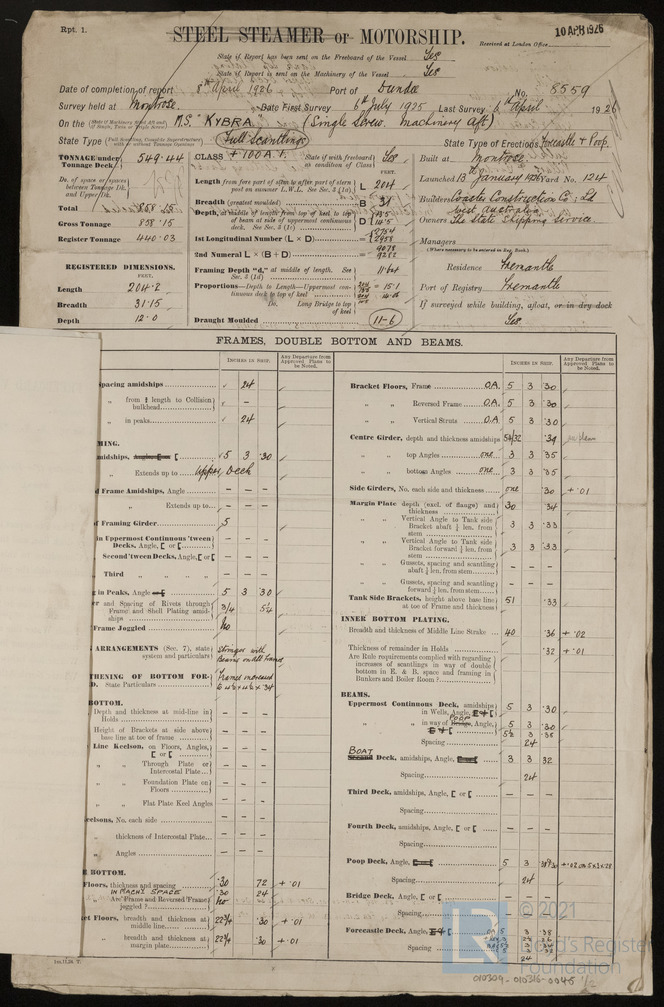 Rpt. 1.
STEEL STEAMER or MOTORSHIP.
10 APR 1926
Received at London Office
State if Report has been sent on the Freeboard of the Vessel Yes
State if Report is sent on the Machinery of the Vessel Yes
Date of completion of report 8th April 1926 Port of Dundee No. 8559
Survey held at Montrose Date First Survey 6th July 1925 Last Survey 6th April 1926
On the M.S. "KYBRA" (Single Screw. Machinery Aft)
State Type Full Scantlings State Type of Erections Forecastle & Poop.
TONNAGE under Tonnage Deck 549.44
Do. of space or spaces between Tonnage Dk. and Upper Dk.
Total 858.15
Gross Tonnage 858.15
Register Tonnage 440.03
REGISTERED DIMENSIONS.
FEET.
Length 204.2
Breadth 31.15
Depth 12.0
CLASS +100A.1. State if with freeboard as condition of Class Yes
FEET.
Length from fore part of stem to after part of stern post on summer L.W.L. See Sec. 3 (1a) L 204
Breadth (greatest moulded) B 31
Depth, at middle of length from top of keel to top of beam at side of uppermost continuous deck. See Sec. 3 (1c) D 14.5
1st Longitudinal Number (L × D) = 2958
2nd Numeral L × (B + D) = 9282
Framing Depth "d," at middle of length. See Sec. 3 (1d) 11.64
Proportions—Depth to Length—Uppermost continuous deck to top of keel = 15.1
Do. Long Bridge to top of keel
Draught Moulded 11-6
Built at Montrose
Launched 13th January 1926 Yard No. 124
Builders Coaster Construction Co; Ld
West Australia
Owners The State Shipping Service
Managers
(Where necessary to be entered in Reg. Book.)
Residence Fremantle
Port of Registry Fremantle
If surveyed while building, afloat, or in dry dock
Yes
FRAMES, DOUBLE BOTTOM AND BEAMS.
INCHES IN SHIP.
Any Departure from Approved Plans to be Noted.
spacing amidships 24
" from ⅕ length to Collision bulkhead –
" in peaks 24
MING.
midships, Angle 5 3 .30
" Extends up to Upper Deck
d Frame Amidships, Angle – – –
" Extends up to – – –
of Framing Girder 5
in Uppermost Continuous 'tween Decks, Angle, [ or [ – – –
Second 'tween Decks, Angle, [ or [ – – –
Third " " " " – – –
g in Peaks, Angle 5 3 30
er and Spacing of Rivets through Frame and Shell Plating amidships 3/4
Frame Joggled No
ARRANGEMENTS (Sec. 7), state system and particulars Stringer with Beams on Alt Frames
THENING OF BOTTOM FOR-
D. State Particulars Frames increased
BOTTOM.
Depth and thickness at mid-line in Holds – – –
Height of Brackets at side above base line at toe of frame – – –
Line Keelson, on Floors, Angles, [ or [ – – –
" " Through Plate or Intercostal Plate – – –
" " Foundation Plate on Floors – – –
" " Flat Plate Keel Angles – – –
eelsons, No. each side – – –
" thickness of Intercostal Plate – – –
" Angles – – –
E BOTTOM.
Floors, thickness and spacing .30 72 + .01
IN MACHY SPACE .30 24
Are Frame and Reversed Frame joggled? No
ket Floors, breadth and thickness at middle line 22¾ .30 + .01
" breadth and thickness at margin plate 22¾ .30 + .01
INCHES IN SHIP.
Any Departure from Approved Plans to be Noted.
Bracket Floors, Frame O.A. 5 3 .30
" " Reversed Frame O.A. 5 3 .30
" " Vertical Struts O.A. 5 3 .30
Centre Girder, depth and thickness amidships .34
" " top Angles one 3 3 .35
" " bottom Angles one 3 3 .35
Side Girders, No. each side and thickness one .30 + .01
Margin Plate depth (excl. of flange) and thickness 30 .34
" Vertical Angle to Tank side Bracket abaft ¼ len. from stem 3 3 .33
" Vertical Angle to Tank side Bracket forward ¼ len. from stem 3 3 .33
" Gussets, spacing and scantling abaft ¼ len. from stem – – –
" Gussets, spacing and scantling forward ¼ len. from stem – – –
Tank Side Brackets, height above base line at toe of Frame and thickness 51 .33
INNER BOTTOM PLATING.
Breadth and thickness of Middle Line Strake 40 .36 + .02
Thickness of remainder in Holds .32 + .01
Are Rule requirements complied with regarding increases of scantlings in way of double bottom in E. & B. space and framing in Bunkers and Boiler Room?
BEAMS.
Uppermost Continuous Deck, amidships in Wells, Angle, 5 3 .30
" " in way of Bridge, Angle, POOP 5 3 .30
5½ 3 .38
Spacing 24
BOAT
Second Deck, amidships, Angle, 3 3 32
Spacing 24
Third Deck, amidships, Angle, [ or [ – – –
Spacing
Fourth Deck, amidships, Angle, [ or [ – – –
Spacing
Poop Deck, Angle, 5 3
Spacing 24
Bridge Deck, Angle, [ or [ – – –
Spacing
Forecastle Deck, Angle, 5 3 .38
Spacing 24
LR
© 2021
Lloyd's Register
Foundation
010304-010316-0045 1/2